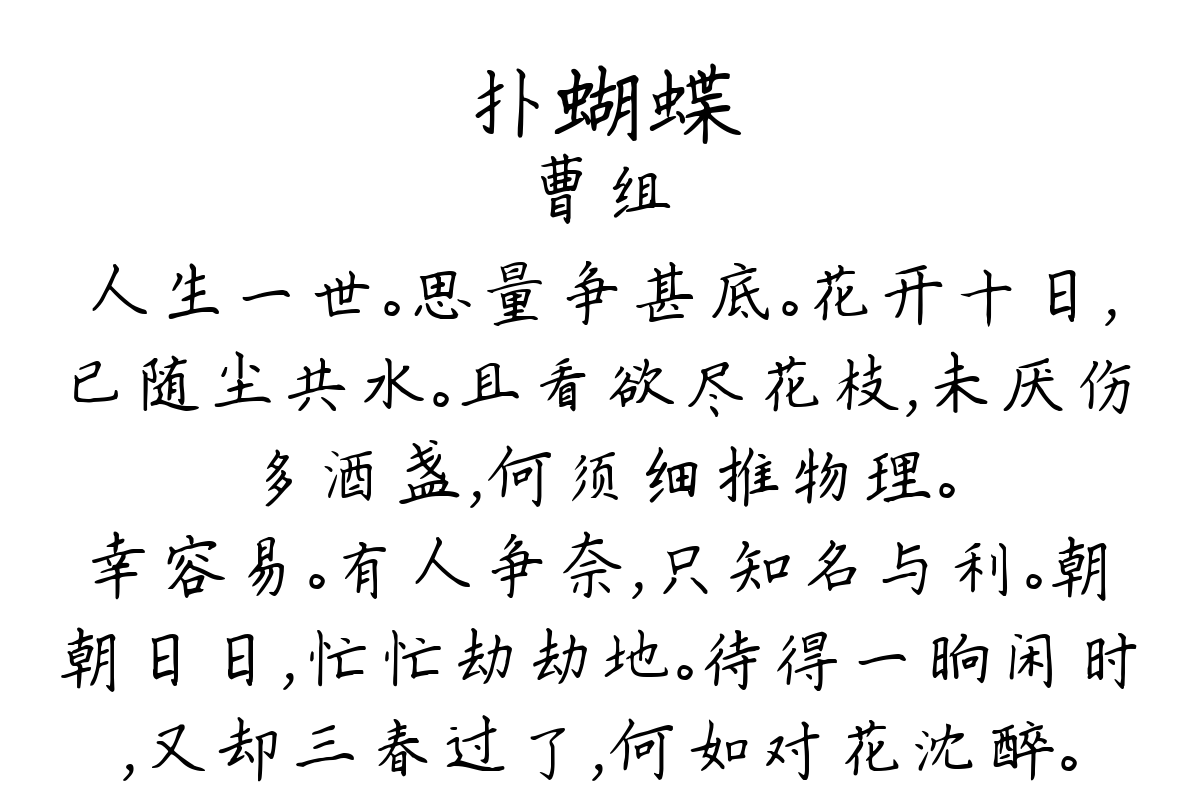 扑蝴蝶
曹组
人生一世。思量争甚底。花开十日,
已随尘共水。且看欲尽花枝,未厌伤
多酒盏,何须细推物理。
幸容易。有人争奈,只知名与利。朝
朝日日,忙忙劫劫地。待得一晌闲时
,又却三春过了,何如对花沈醉。